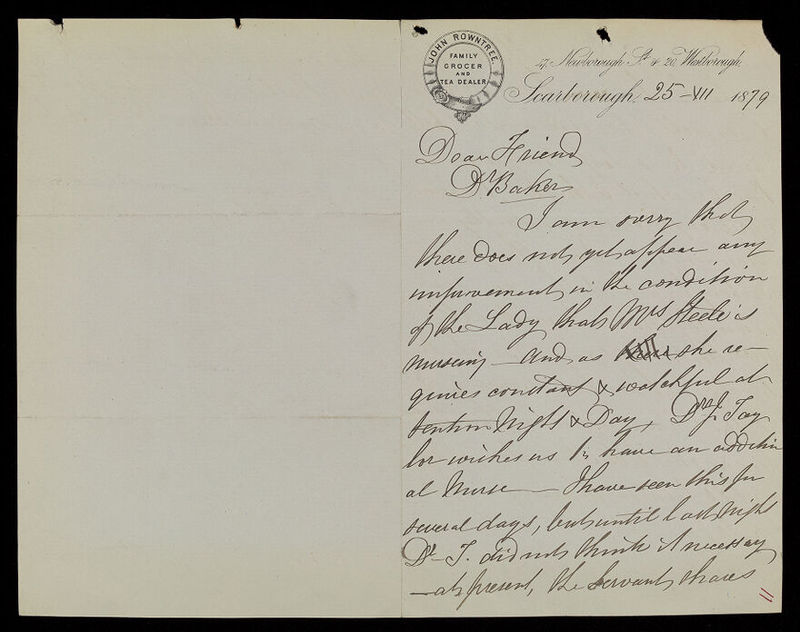 JOHN ROWNTREE.
FAMILY
GROCER
AND
TEA DEALER
47, Newborough St. & 20, Westborough,
Scarborough, 25-VII 1879
Dear Friend
Dr Baker
I am sorry that
there does not yet appear any
improvement in the condition
of the Lady that Mrs Steele is
nursing - and as she re-
quires constant & watchful at
tention Night & Day, Dr J. Tay
lor wishes us to have an addition
al Nurse - I have seen this for
several days, but until last night
Dr. T. did not think it necessary
- at present, the Servant shares
11